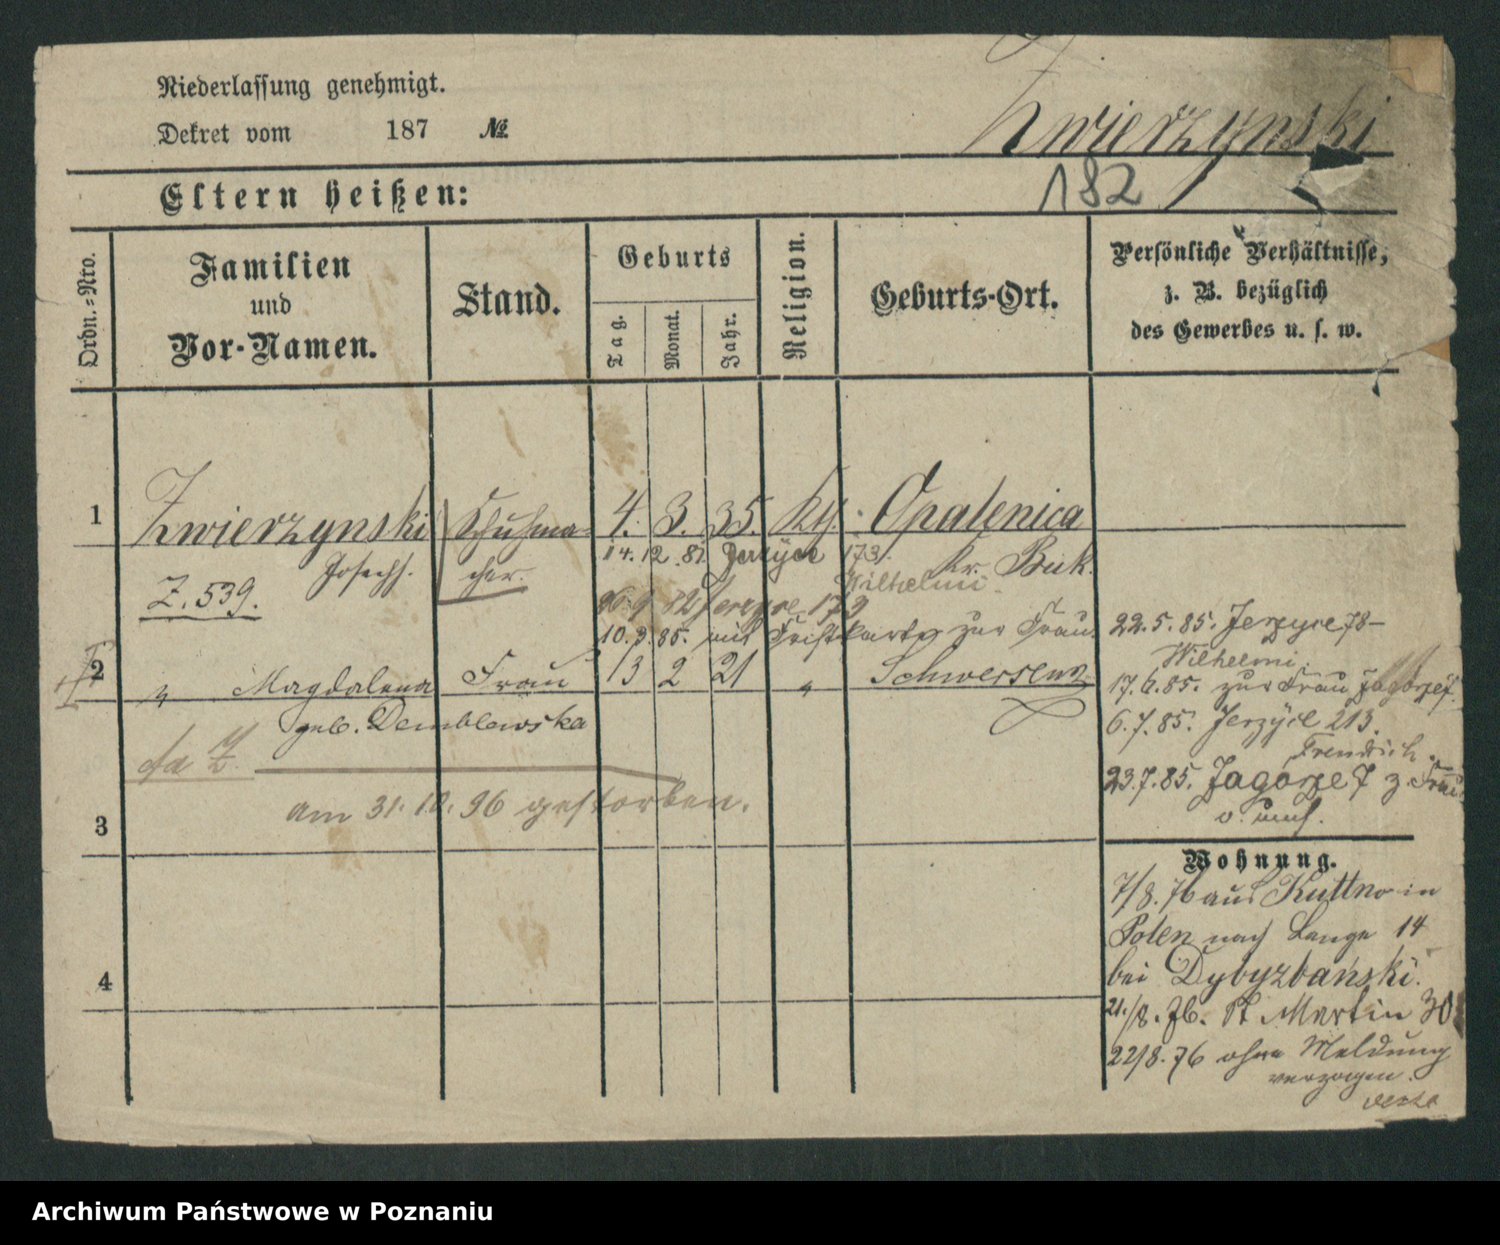 Niederlassung genehmigt.
Dekret vom 187 №
Zwierzynski
182
Eltern heißen:
Ordn.=Nro.
Familien
und
Vor-Namen.
Stand.
Geburts
Tag.
Monat.
Jahr.
Religion.
Geburts-Ort.
Persönliche Verhältnisse,
z. B. bezüglich
des Gewerbes u. s. w.
1 Zwierzynski Schuhma- 4. 3. 35. Kth. Opalenica
Joseph. cher. 14.12.81. Jerzyce 173. Kr. Buk.
Z. 539. Wilhelmi.
Jerzyce 179
10.9.85. mit Fristkarte zur Frau
22.5.85. Jerzyce 78-
Wilhelmi.
2 " Magdalena Frau 13 2 21 " Schwersenz
17.6.85. zur Frau Zagorze 7.
geb. Demblewska
6.7.85. Jerzyce 213.
23.7.85. Zagorze 7 z. Frau
am 31.10.96 gestorben.
3
Wohnung.
7/8.76 aus Kuttno in
Polen nach Lange 14
4
bei Dybyzbański.
21./8.76. St Martin 30
22/8.76 ohne Meldung
verzogen.
Archiwum Państwowe w Poznaniu